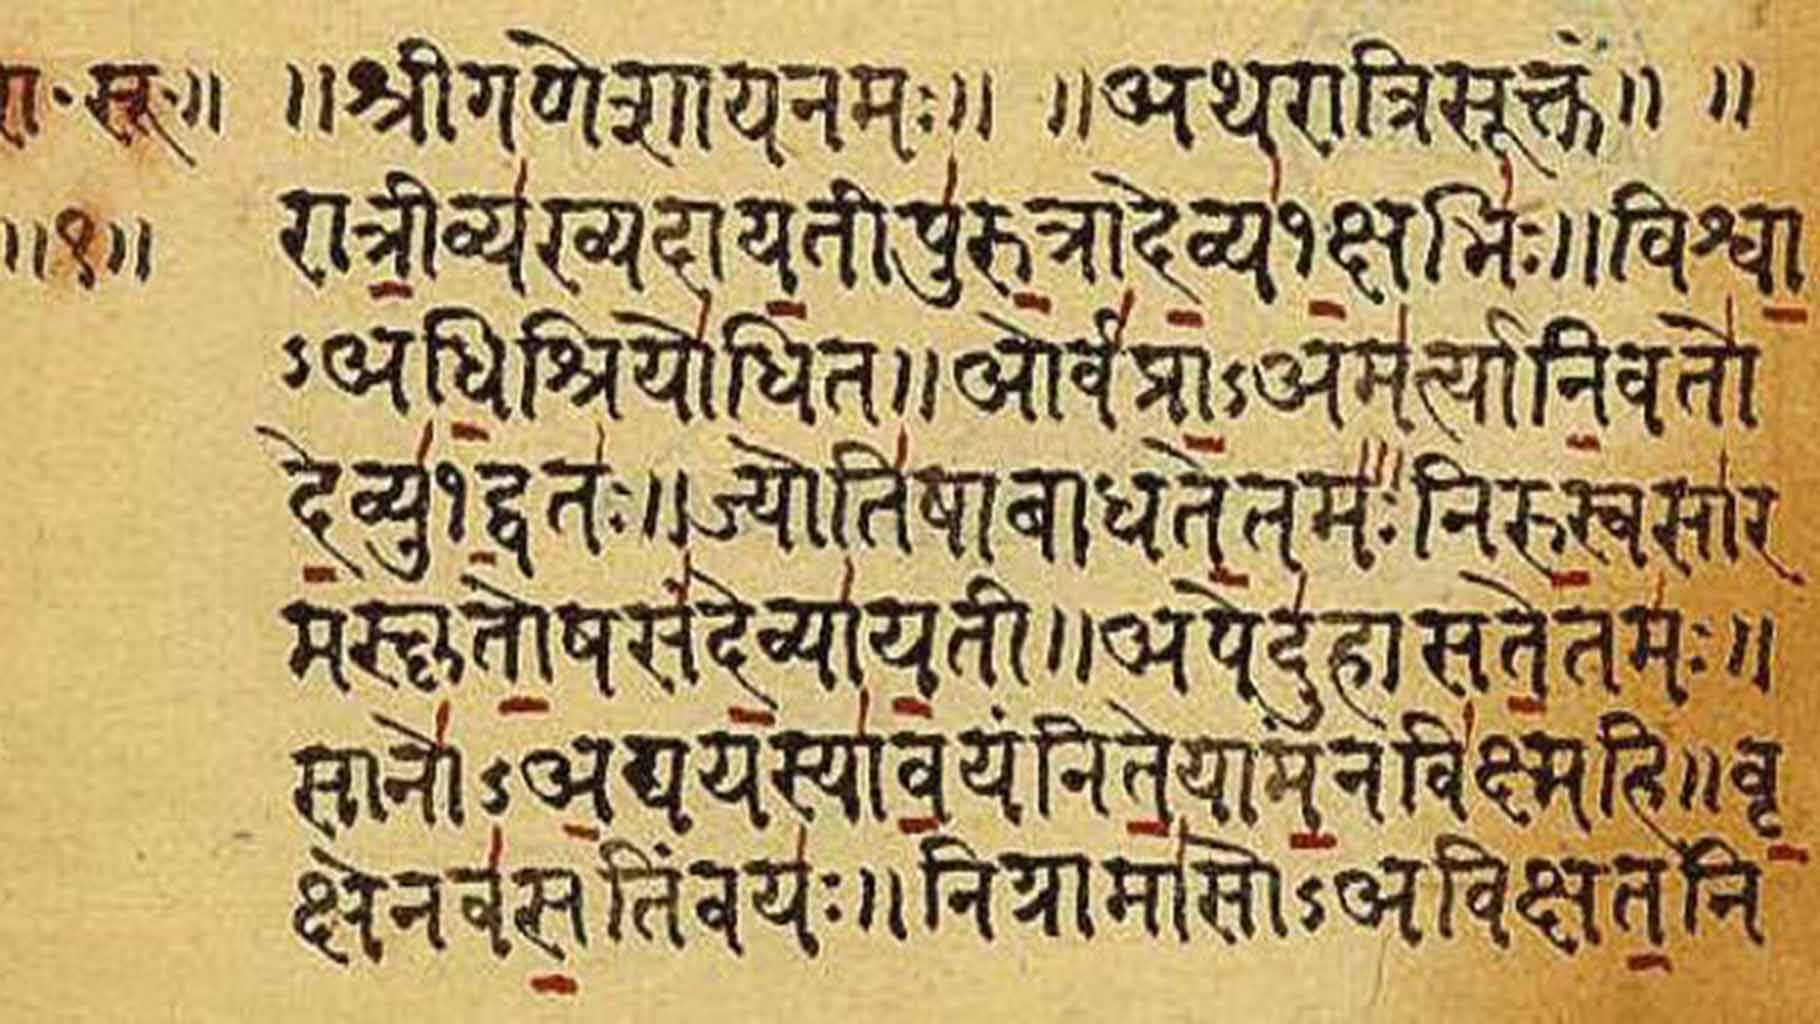 रा॰सू॰॥ ॥श्रीगणेशायनमः॥ ॥अथरात्रिसूक्तं॥ ॥
॥१॥ रात्री॒व्य॑ख्यदाय॒तीपु॑रु॒त्रादे॒व्य१॒॑क्षभिः॑॥विश्वा॒
ऽअधि॒श्रियो॑धित॥ओर्व॑प्रा॒ऽअम॑र्त्यानि॒वतो॑
दे॒व्यु१॒॑द्वतः॑॥ज्योति॑षाबाधते॒तमः॑॥निरु॒स्वसा॑र॒
मस्कृतो॒षसं॑दे॒व्या॑य॒ती॥अपेदु॑हासते॒तमः॑॥
सानो॑ऽअ॒द्ययस्या॑व॒यंनिते॒याम॒न्नवि॑क्ष्महि॥वृ॒
क्षेनव॑स॒तिंवयः॑॥निग्रामा॑सोऽअविक्षत॒नि